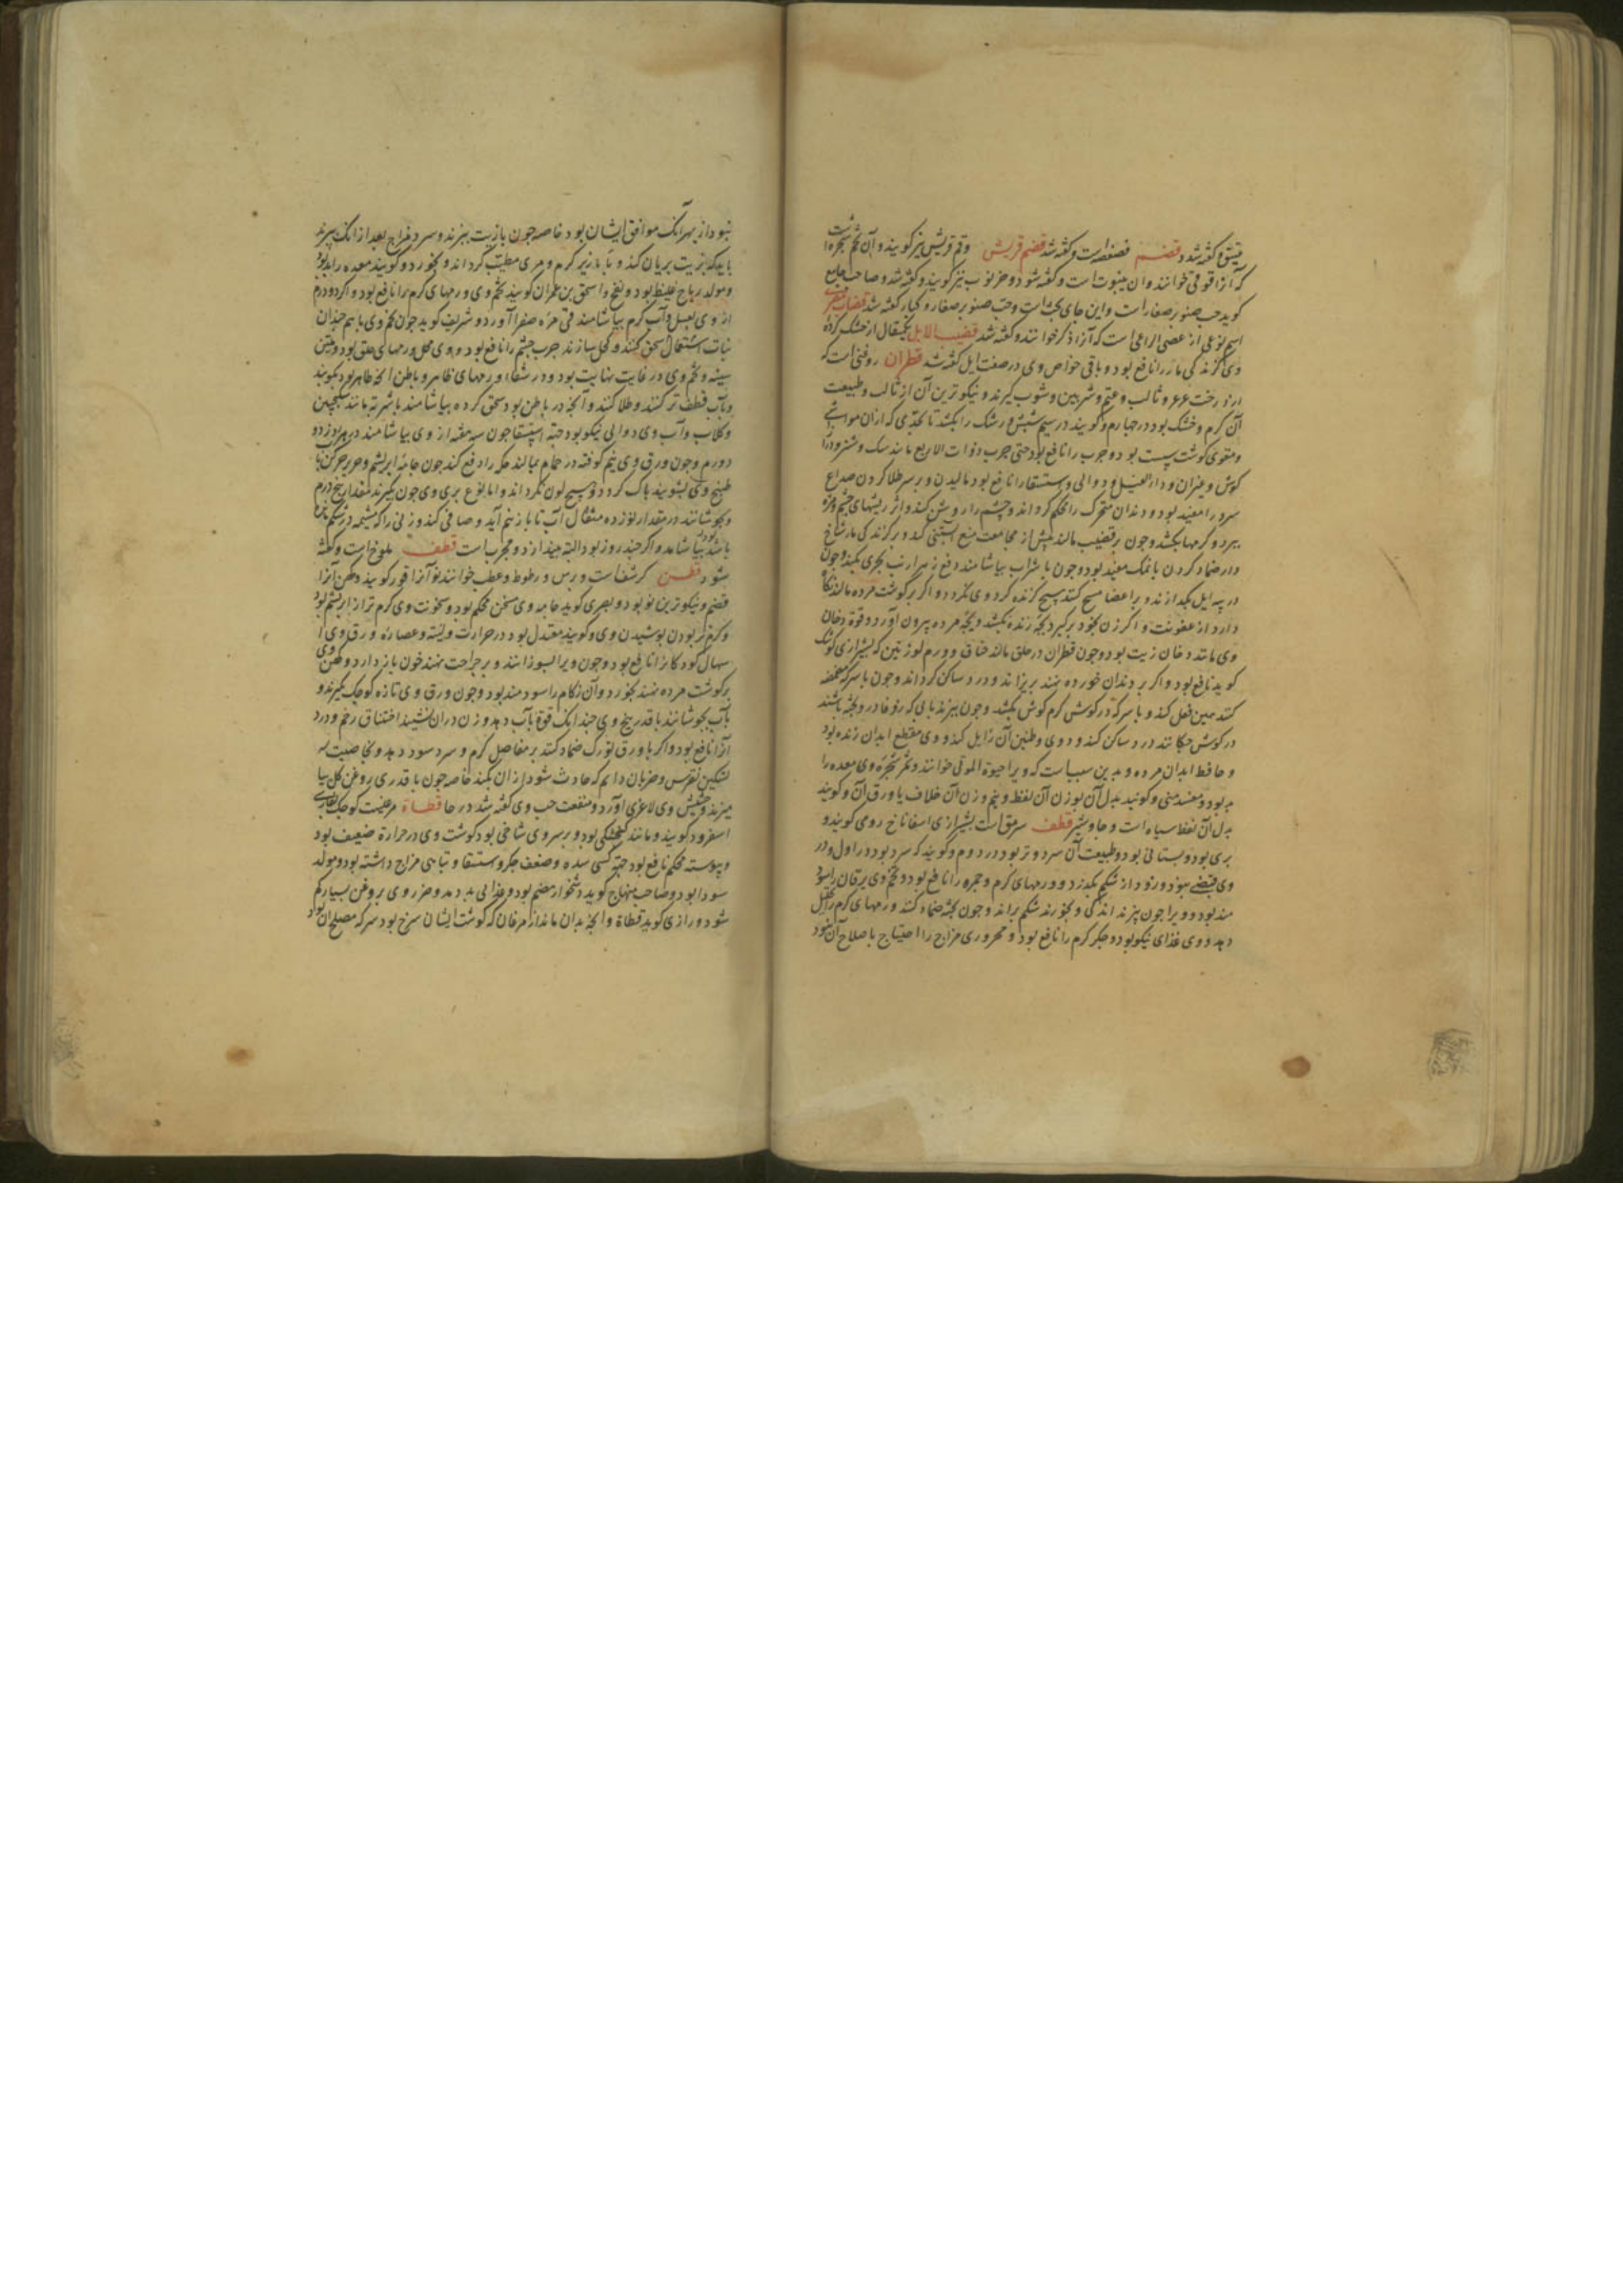 عتیق و گفته شد قضم فصفصه است و گفته شد قضم قریش و قم قریش نیز گویند و آن تخم شجره است
که آنرا قوفی خوانند و آن ینبوت است و گفته شود و خرنوب نیز گویند و گفته شد و صاحب جامع
گوید حب صنوبر صغار است و این جای بحث است و حب صنوبر صغار و کبار گفته شد قضاب مصری
اسم نوعی از عصی الراعی است که آنرا ذکر خوانند و گفته شد قضیب الایل یکمثقال از خشک کرده
وی گزندگی مار را نافع بود و باقی خواص وی در صفت ایل گفته شد قطران روغنی است که
از درخت عرعر و ثالب و عتم و شربین و شوب گیرند و نیکوترین آن از ثالب و طبیعت
آن گرم و خشک بود در چهارم و گویند در سیم شپش و رشک را بکشد تا بحدی که از آن مواشی
و مقوی گوشت سست بود و جرب را نافع بود حتی جرب ذوات الاربع مانند سک و شتر و دراز
گوش و غیر آن و داء الفیل و دوالی و استسقا را نافع بود مالیدن و بر سر طلا کردن صداع
سرد را مفید بود و دندان متحرک را محکم گرداند و چشم را روشن کند و اثر ریشهای چشم و غیره
ببرد و کرمها بکشد و چون بر قضیب مالند پیش از مجامعت منع آبستنی کند و بر گزندگی مار شاخ
دار ضماد کردن با نمک مفید بود و چون با شراب بیاشامند دفع زهر ارنب بحری بکند و چون
در پیه ایل بگدازند و بر اعضا مسح کنند هیچ گزنده گرد وی نگردد و اگر بر گوشت مرده مالند نگاه
دارد از عفونت و اگر زن بخود برگیرد بچه زنده بکشد و بچه مرده بیرون آورد و قوة دخان
وی مانند دخان زیت بود و چون قطران در حلق مالند خناق و ورم لوزتین که بشیرازی گوشک
گویند نافع بود و اگر بر دندان خورده نهند بریزاند و درد ساکن گرداند و چون با سرکه مضمضه
کنند همین فعل کند و با سرکه در گوش کرم گوش بکشد و چون بپزند بآبی که زوفا در وی پخته باشند
در گوش چکانند درد ساکن کند و دوی و طنین آن زایل کند و وی مقطع ابدان زنده بود
و حافظ ابدان مرده و بدین سبب است که ویرا حیوة الموتی خوانند و ثمر شجره وی معده را
بد بود و مفسد منی و گویند بدل آن بوزن آن نفط و نیم وزن آن خلاف یا ورق آن و گویند
بدل آن نفط سیاه است و جاوشیر قطف سرمق است بشیرازی اسفاناخ رومی گویند و
بری بود و بستانی بود و طبیعت آن سرد و تر بود در دوم و گویند که سرد بود در اول و در
وی قبضی نبود و زود از شکم بگذرد و ورمهای گرم و حمره را نافع بود و تخم وی یرقان را سود
مند بود و ویرا چون پزند اندکی و بخورند شکم براند و چون پخته ضماد کنند ورمهای گرم را تحلیل
دهد و وی غذای نیکو بود و جگر گرم را نافع بود و محروری مزاج را احتیاج باصلاح آن نبود
نبود از بهر آنک موافق ایشان بود خاصه چون با زیت بپزند و سرد مزاج بعد از آنک بپزند
باید که بزیت بریان کند و با بازیر گرم و مری مطیب گرداند و بخورد و گویند معده را بد بود
و مولد ریاح غلیظ بود و نفخ و اسحق بن عمران گویند تخم وی ورمهای گرم را نافع بود و اگر دو درم
از وی بعسل و آب گرم بیاشامند قی مره صفرا آورد و شریف گوید چون تخم وی با هم چندان
نبات اشتعال سحق کنند و کحل سازند جرب چشم را نافع بود و وی محل ورمهای حلق بود و ملین
سینه و تخم وی در غایت نهایت بود و در شفاء ورمهای ظاهر و باطن آنچه ظاهر بود بکوبند
و بآب قطف تر کنند و طلا کنند و آنچه در باطن بود سحق کرده بیاشامند باشربه مانند سکنجبین
و گلاب و آب وی دوالی نیکو بود جهة استسقا چون سه هفته از وی بیاشامند در هر روز دو
دو درم و چون ورق وی نیم کوفته در حمام بمالند حکه را دفع کند چون جامه ابریشم و حریر چرکن با
طبخ وی بشویند پاک گردد و هیچ لون نگرداند و اما نوع بری وی چون بگیرند مقدار پنج درم
و بجوشانند در مقدار نوزده مثقال آب تا با زنیم آید و صافی کند و زنی را که مشیمه در شکم مانده
باشد بیاشامد و اگر چند روز بود البته بیندازد و مجرب است قطف ملوخ است و گفته
شود قطن کرسف است و برس و رطوط و عطب خوانند نو آنرا قور گویند و کهن آنرا
قضم و نیکوترین نو بود و بصری گوید جامه وی سخن محکم بود و سخونت وی گرم تر از ابریشم بود
و گرم تر بودن پوشیدن وی و گویند معتدل بود در حرارت و لینه و عصاره ورق وی ا
سهال کودکان را نافع بود و چون ویرا بسوزانند و بر جراحت نهند خون باز دارد و کهن وی
بر گوشت مرده نهند بخورد و آن زکام را سودمند بود و چون ورق وی تازه کوچک بگیرند و
بآب بجوشانند با قدر بیخ وی چندانک قوة بآب دهد و زن در آن نشیند اختناق رحم و درد
آنرا نافع بود و اگر با ورق تورک ضماد کنند بر مفاصل گرم و سرد سود دهد و بخاصیت که
تسکین نقرس و ضربان دایم که حادث شود از آن بکند خاصه چون با قدری روغن گل بیا
میزند و حشیش وی لاغری آورد و منفعت حب وی گفته شد در حا قطاة مرغیست کوچک بپارسی
اسفرود گویند و مانند گنجشکی بود و بر سر وی شاخی بود گوشت وی در حرارة ضعیف بود
و یبوسته محکم نافع بود جهة کسی سده و ضعف جگر و استسقا و تباهی مزاج داشته بود و مولد
سودا بود و صاحب منهاج گوید دشخوار هضم بود و غذایی بد دهد و مضر وی بروغن بسیار کم
شود و رازی گوید قطاة و آنچه بدان ماند از مرغان که گوشت ایشان سرخ بود سرکه مصلح آن بود